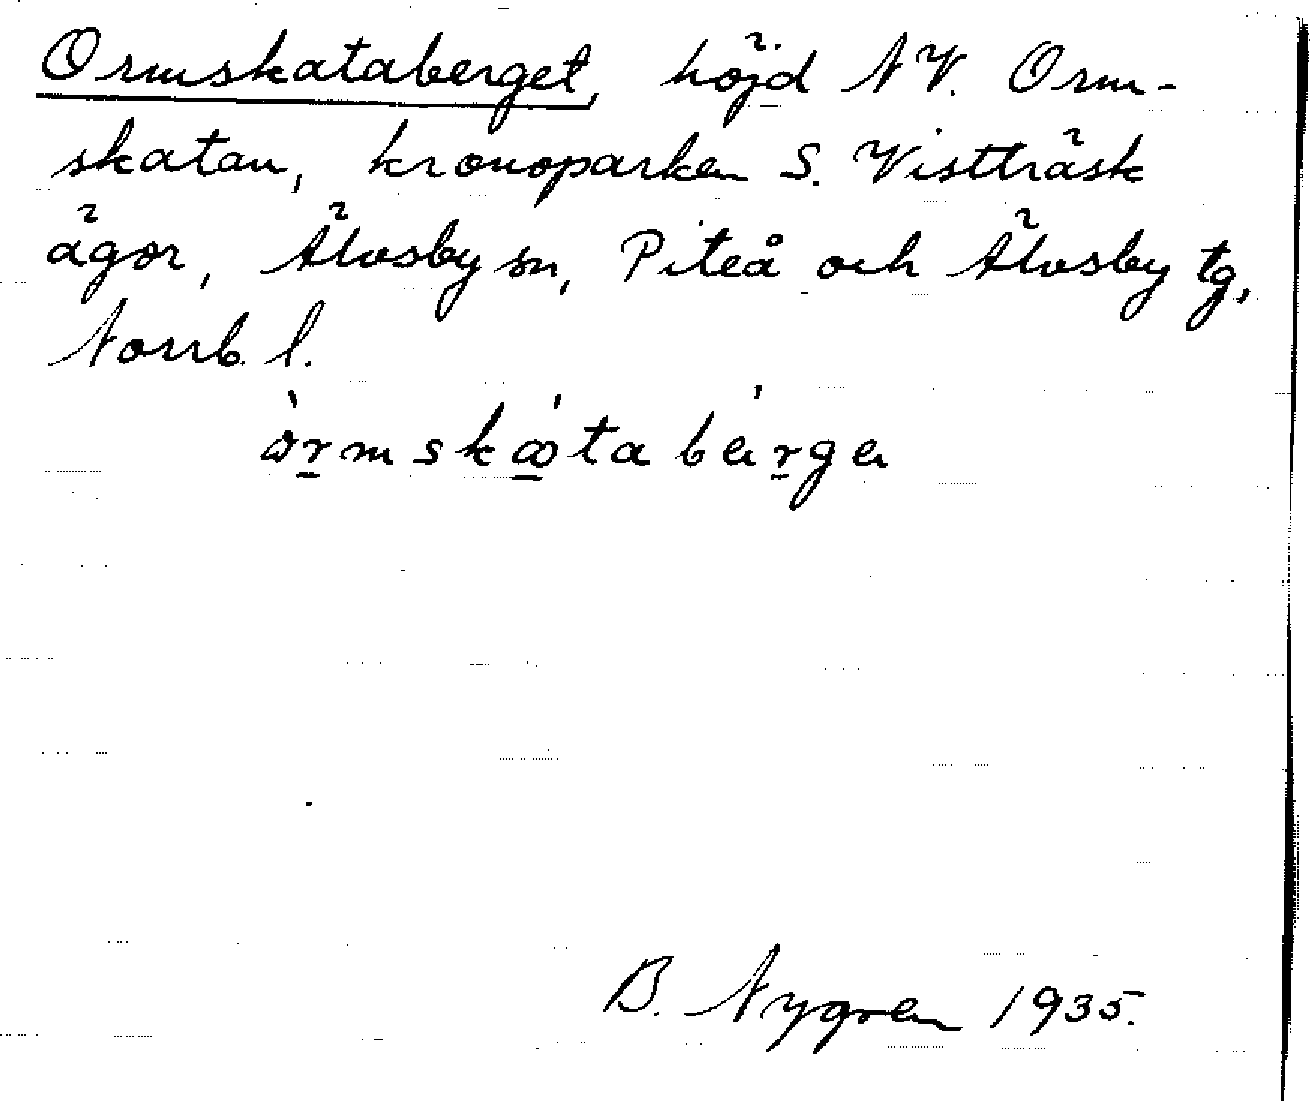 Ormskataberget, höjd NV. Orm-
skatan, kronoparken S. Vistträsk
ägor, Älvsby sn, Piteå och Älvsby tg,
Norrb. l.
òrmskátabérge
B. Nygren 1935.